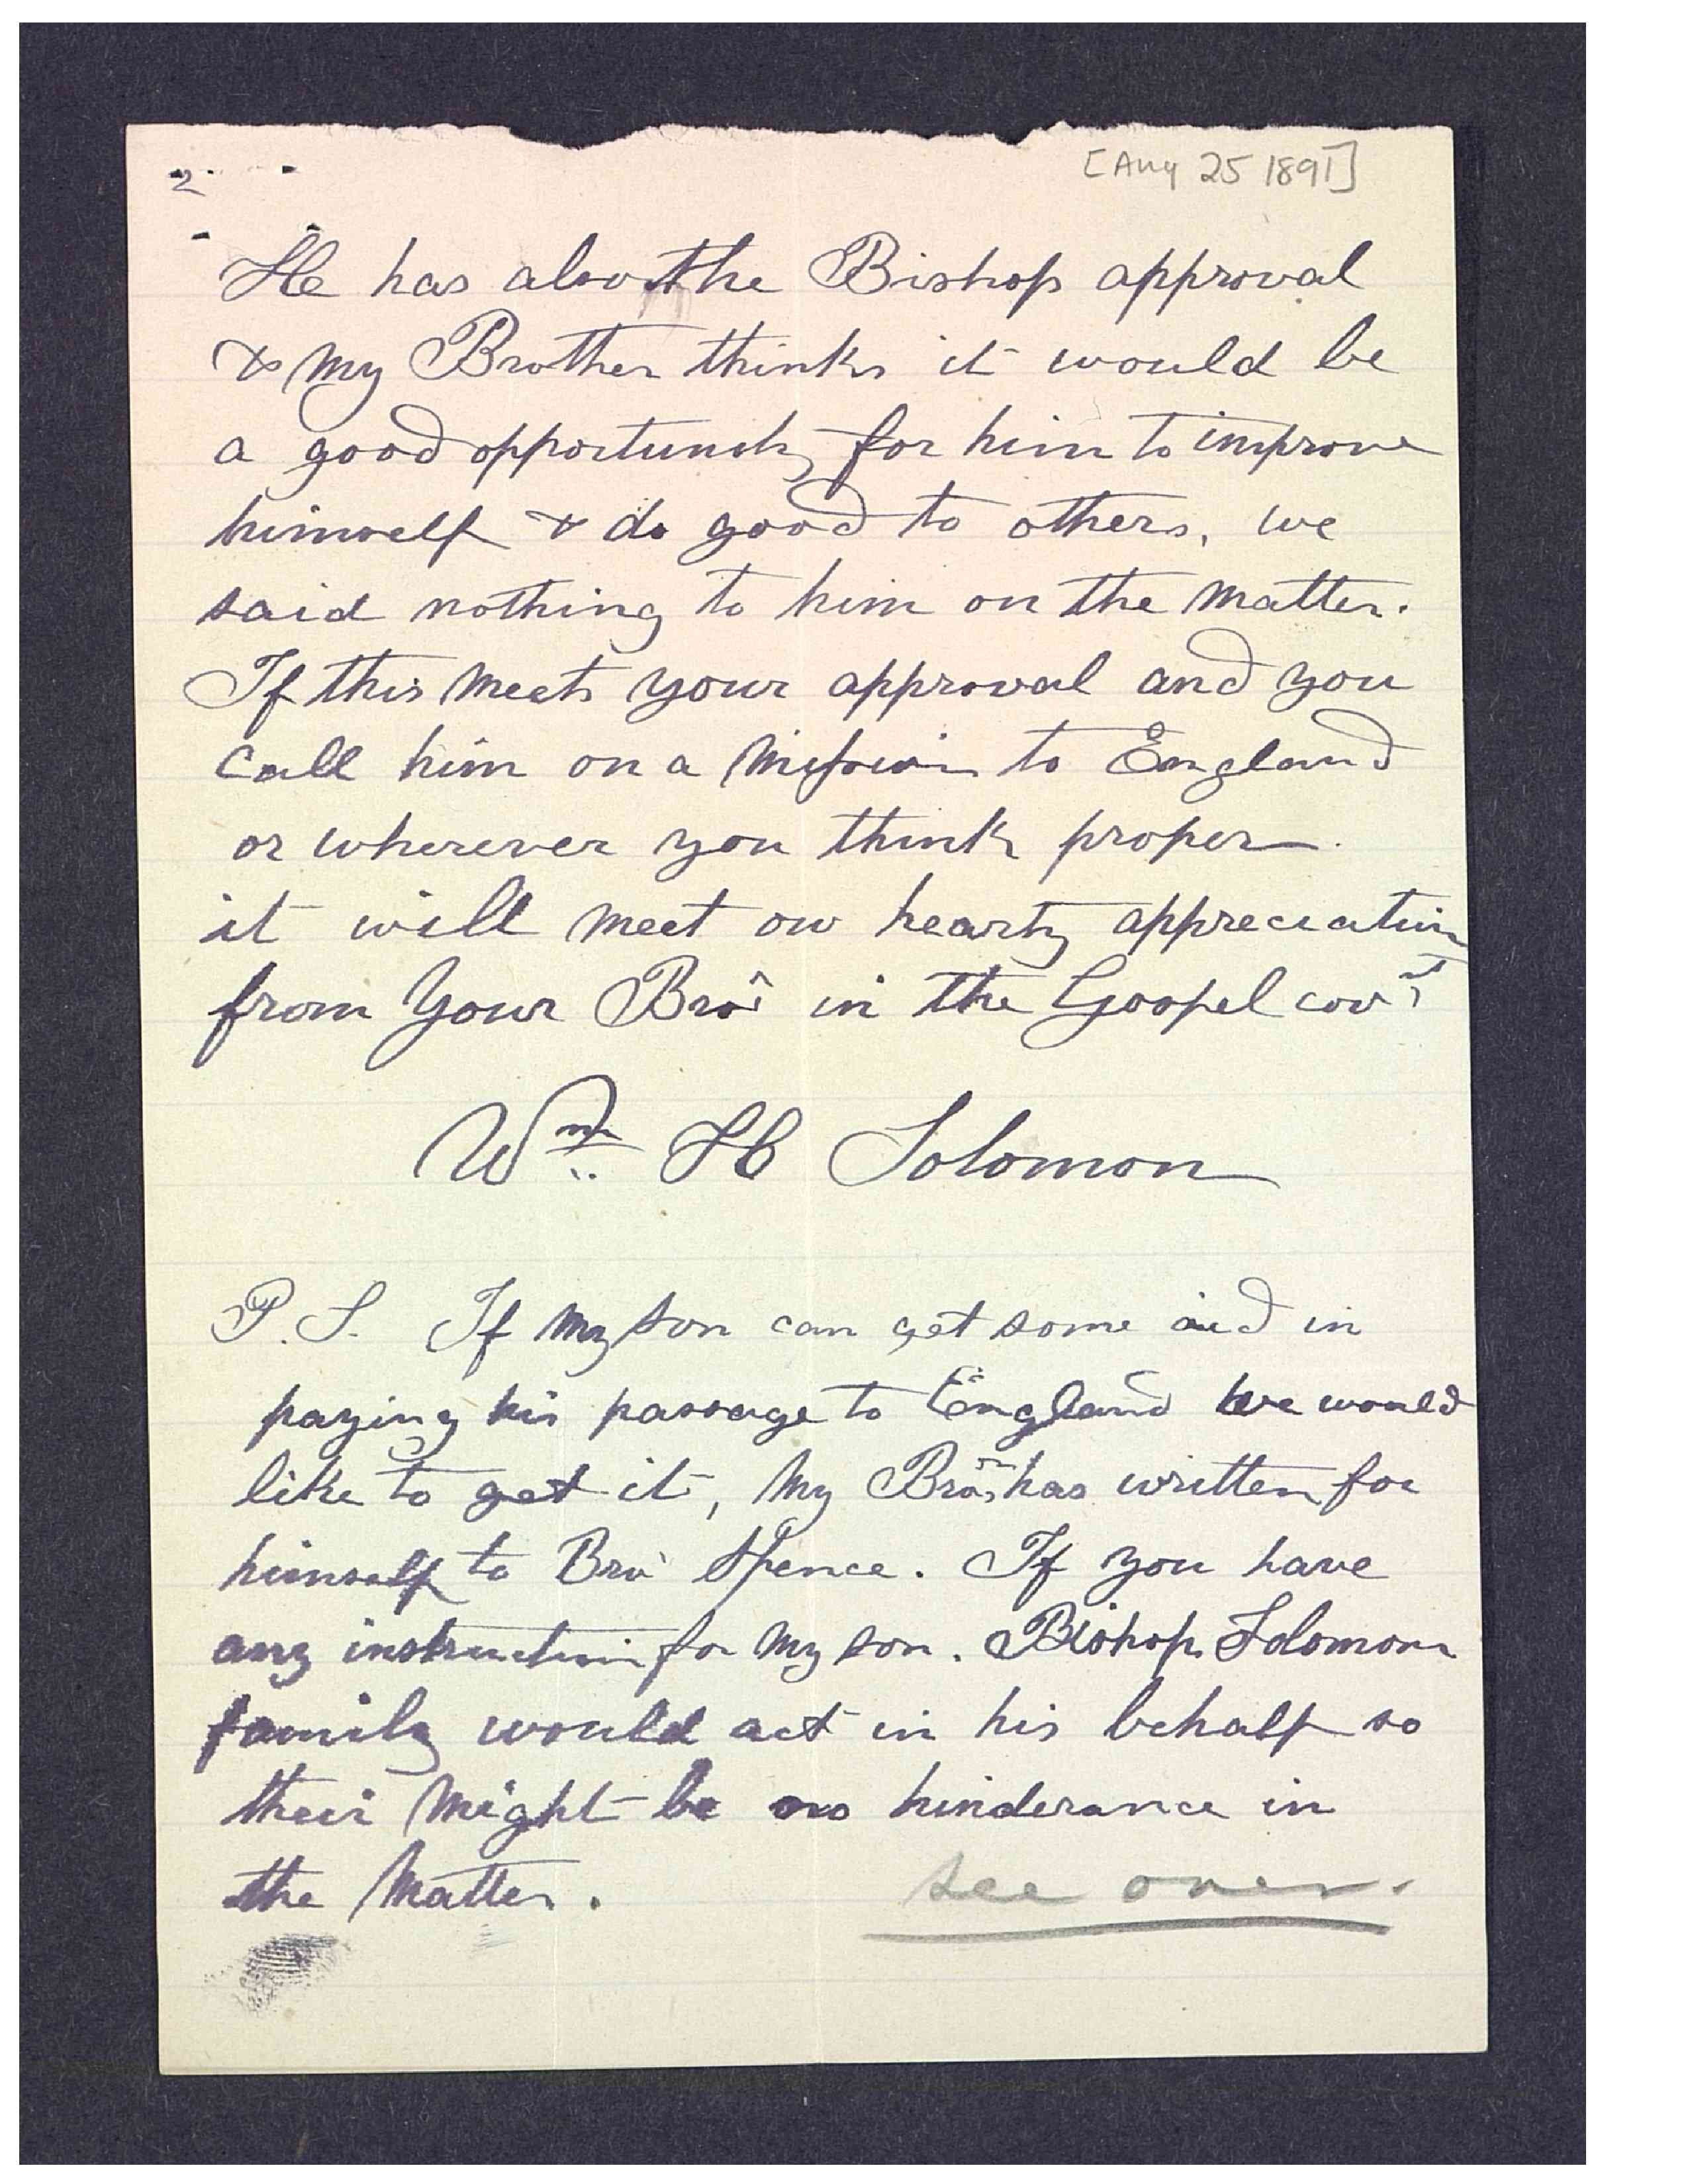 2
[Aug 25 1891]
He has also the Bishop approval
& my Brother thinks it would be
a good opportunity for him to improve
himself & do good to others, we
said nothing to him on the matter.
If this meets your approval and you
call him on a mission to England
or wherever you think proper.
it will meet our hearty appreciation
from Your Bro in the Gospel covt
Wm H Solomon
P.S. If my son can get some aid in
paying his passage to England we would
like to get it, my Bro has written for
himself to Bro Spence. If you have
any instruction for my son. Bishop Solomon
family would act in his behalf so
their might be no hinderance in
the matter.
see over.